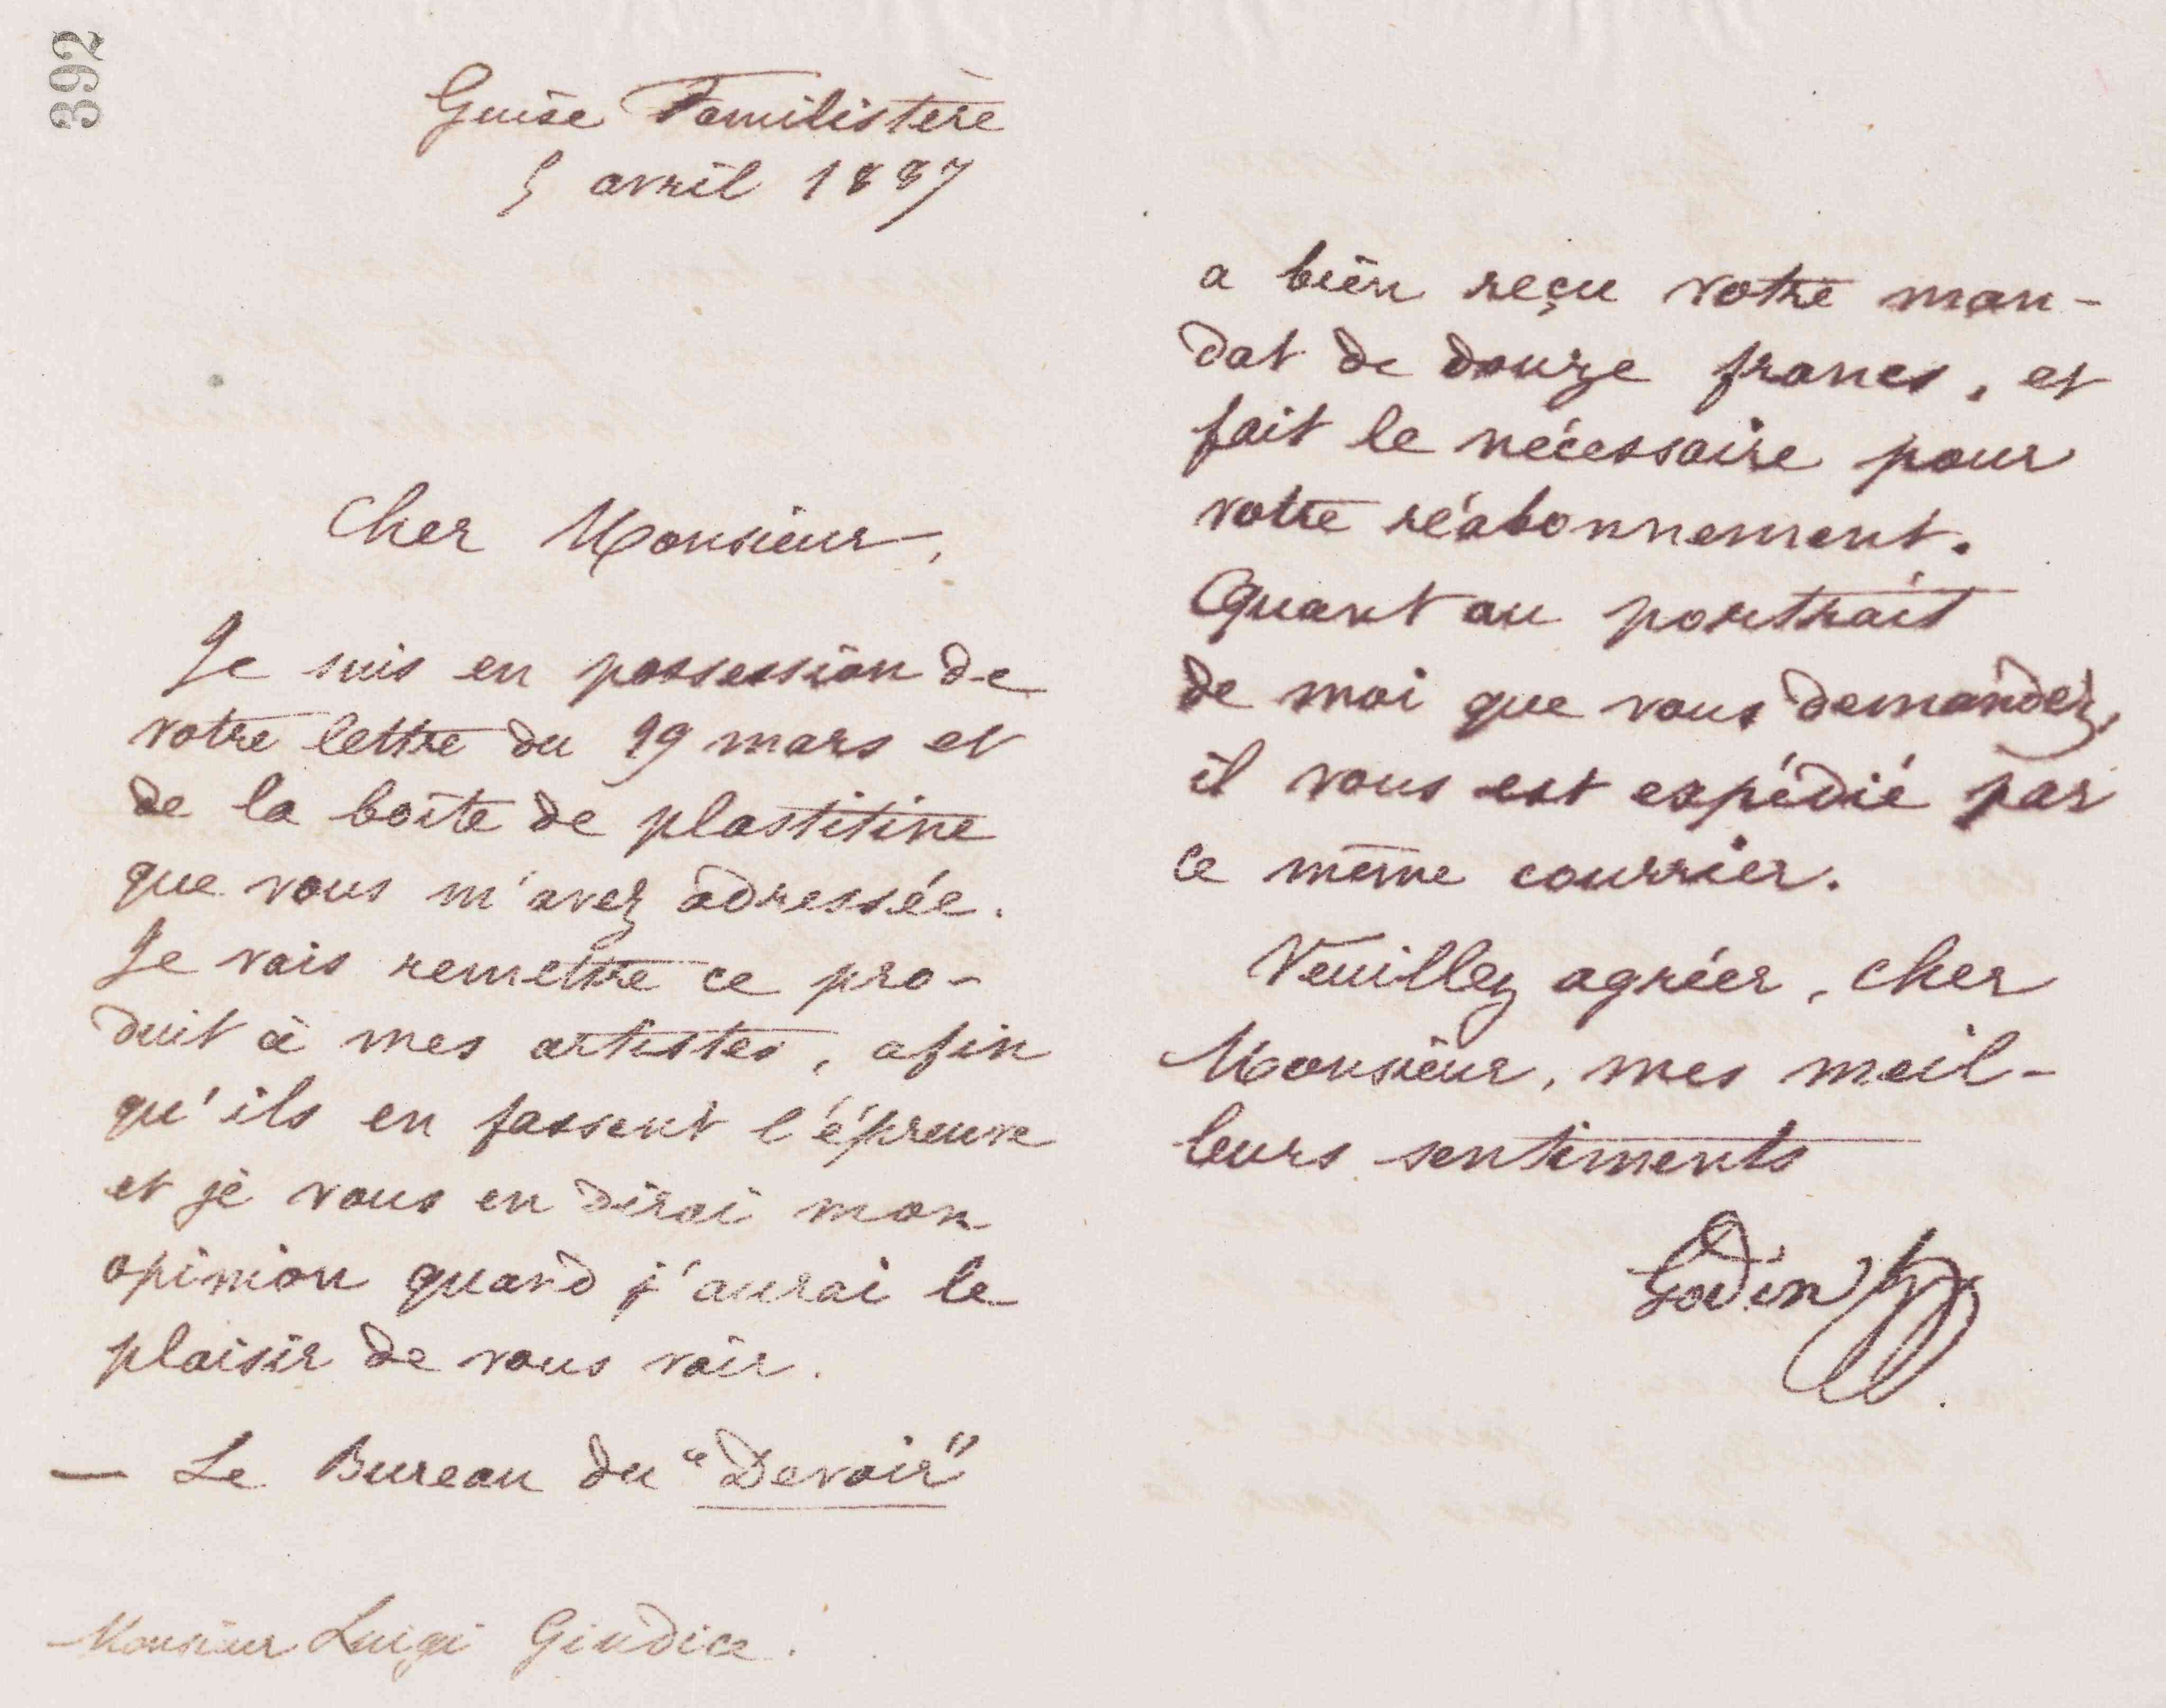 392
Guise Familistère
5 avril 1887
Cher Monsieur,
Je suis en possession de
votre lettre du 29 mars et
de la boîte de plastitine
que vous m'avez adressée.
Je vais remettre ce pro-
duit à mes artistes, afin
qu'ils en fassent l'épreuve
et je vous en dirai mon
opinion quand j'aurai le
plaisir de vous voir.
— Le Bureau du "Devoir"
Monsieur Luigi Giudice.
a bien reçu votre man-
dat de douze francs, et
fait le nécessaire pour
votre réabonnement.
Quant au portrait
de moi que vous demandez,
il vous est expédié par
ce même courrier.
Veuillez agréer, cher
Monsieur, mes meil-
leurs sentiments
Godin